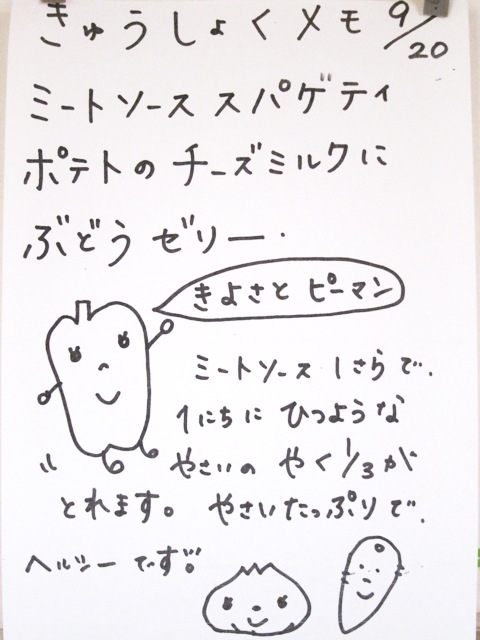 きゅうしょくメモ 9/20
ミートソース スパゲティ
ポテトの チーズミルクに
ぶどう ゼリー.
きよさと ピーマン
ミートソース 1さらで.
1にちに ひつような
やさいの やく 1/3が
とれます。 やさいたっぷりで.
ヘルシーです!!